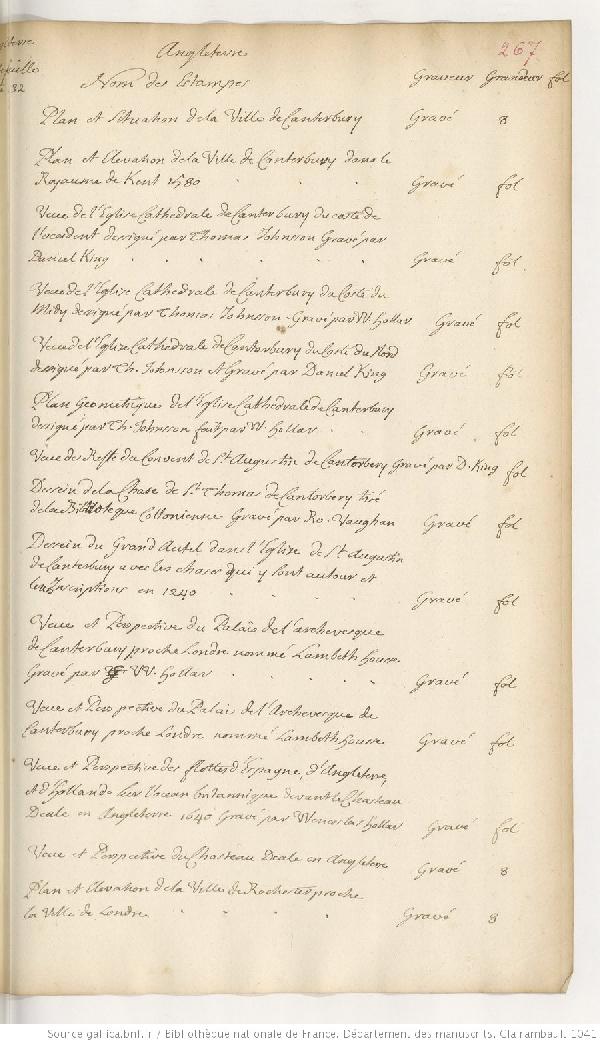 Angleterre
267
Nom des Estampes Graveur Grandeur fol
82
Plan et Situation de la Ville de Canterbury Gravé 8
Plan et Elevation de la Ville de Canterbury dans le
Royaume de Kent 1580 Gravé fol
Veue de l'Eglise Cathedrale de Canterbury du costé de
l'occident designé par Thomas Johnson Gravé par
Daniel King Gravé fol.
Veue de l'Eglise Cathedrale de Canterbury du Costé du
Midy designé par Thomas Johnson. Gravé par W. Hollar Gravé fol
Veue de l'Eglise Cathedrale de Canterbury du Costé du Nord
designé par Th. Johnson et Gravé par Daniel King Gravé fol
Plan Geometrique de l'Eglise Cathedrale de Canterbury
designé par Th. Johnson fait par W. Hollar Gravé fol
Veue des Reste du Convent de St. Augustin de Canterbery Gravé par D. King fol
Dessein de la Chase de St. Thomas de Canterbery tiré
de la Biblioteque Cottonienne Gravé par Ro. Vaughan Gravé fol
Dessein du Grand Autel dans l'Eglise de St. Augustin
de Canterbury avec les chases qui y sont autour et
les Inscriptions en 1240 Gravé fol
Veue et Perspective du Palais de l'archevesque
de Canterbury proche Londre nommé Lambeth House
Gravé par W. Hollar Gravé fol
Veue et Perspective du Palais de l'Archevesque de
Canterbury proche Londre nommé Lambeth House Gravé fol
Veue et Perspective des flottes d'Espagne, d'Angleterre,
et d'Hollande sur l'ocean britannique devant le Chasteau
Deale en Angleterre 1640 Gravé par Wenceslas Hollar Gravé fol
Veue et Perspective du Chasteau Deale en Angleterre Gravé 8
Plan et Elevation de la Ville de Rochester proche
la Ville de Londre Gravé 8
Source gallica.bnf.fr / Bibliothèque nationale de France. Département des manuscrits. Clairambault 1041